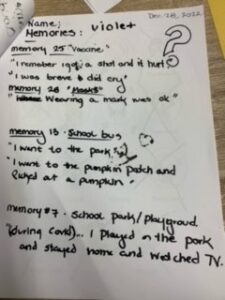 Dec 28, 2022
Name:
Memories: violet
?
memory 25 "Vaccine."
"I remeber I got a shot and it hurt"
"I was brave & did cry"
memory 28 "Masks"
"Wearing a mask was ok."
memory 13 · School bus
"I went to the park"
"I went to the pumpkin patch and
Picked at a pumpkin"
memory #7 · School park/playgroud
"(during Covid)... I played in the park
and stayed home and watched TV.